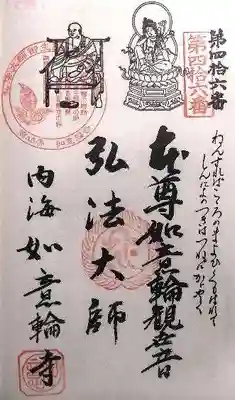 第四拾六番
第四拾六番
こころのまよひくもはれて
しんによのつきはつねにかがやく
本尊如意輪観世音
弘法大師
内海 如意輪寺